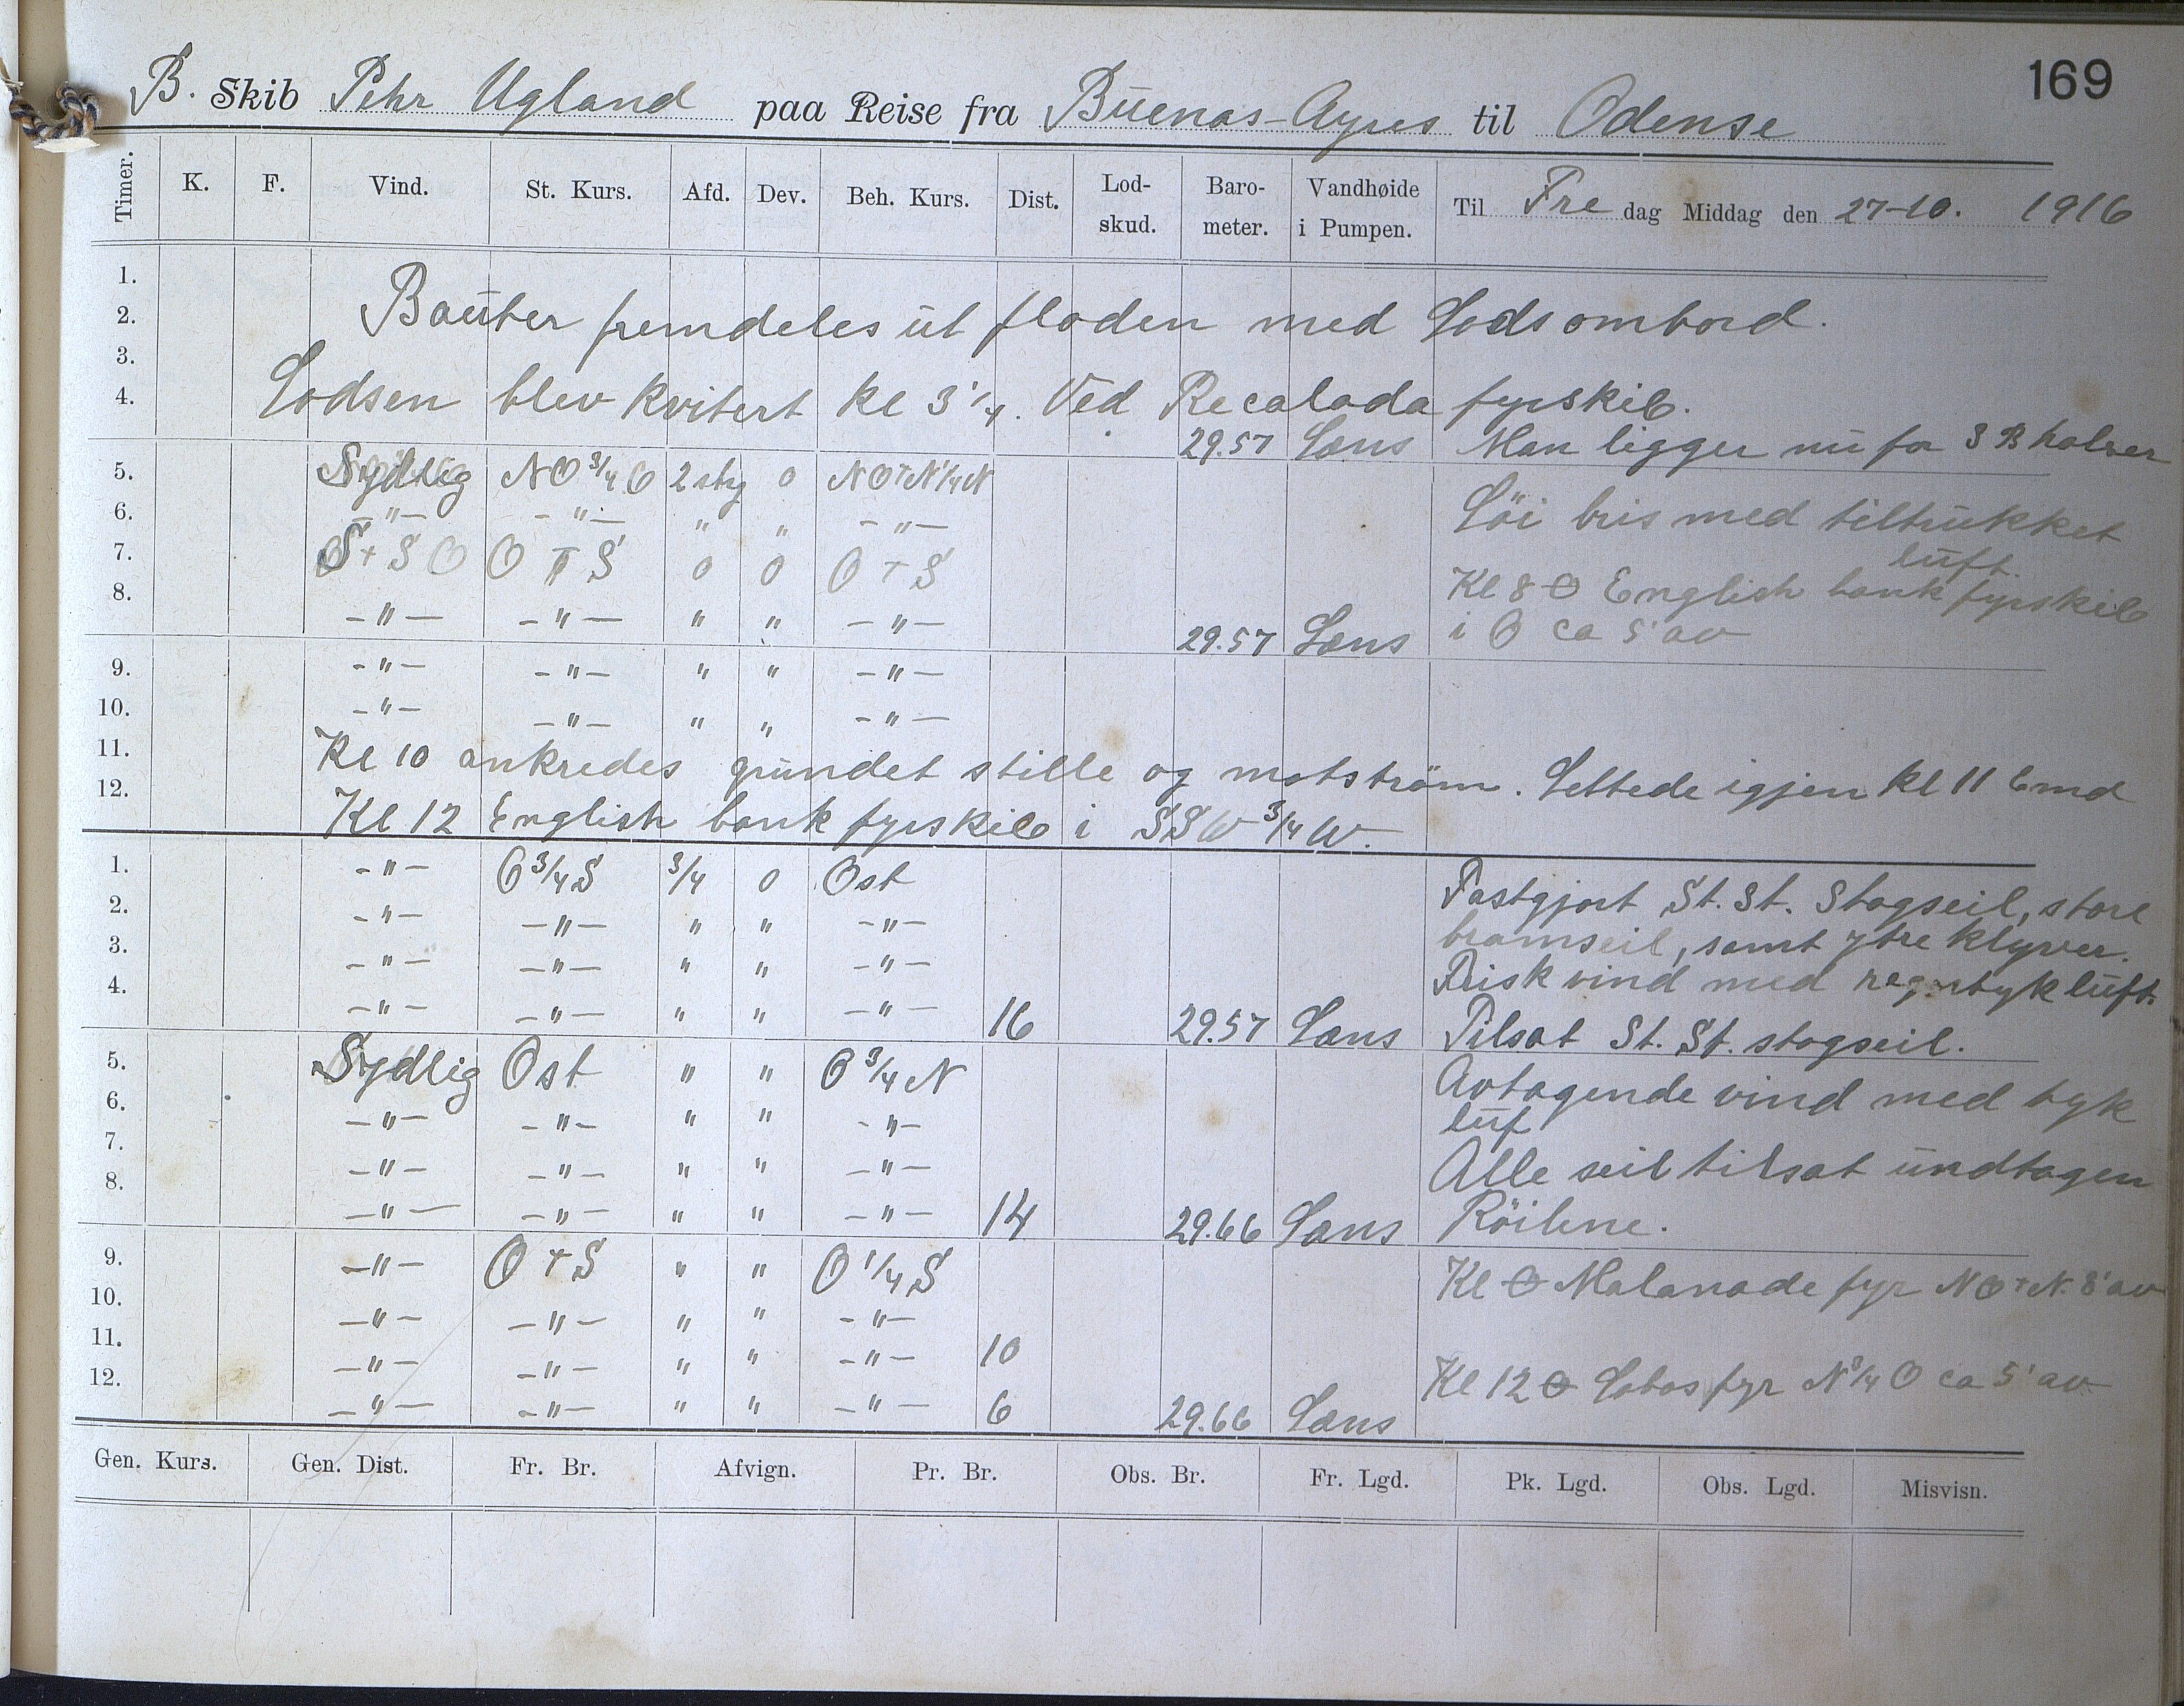 169
B. Skib Pehr Ugland paa Reise fra Buenas-Ayres til Odense
Timer. K. F. Vind. St. Kurs. Afd. Dev. Beh. Kurs. Dist. Lod-skud. Baro-meter. Vandhøide i Pumpen. Til Fredag Middag den 27-10. 1916
1.
2. Bauter fremdeles ut floden med Lods ombord.
3.
4. Lodsen blev kvitert kl 3 1/4. Ved Recalada fyrskib.
29.57 Læns Man ligger nu for 3 B halser
5. Sydlig NO 3/4 O 2 stg 0 NO+N 1/4 N
6. -"- -"- " " -"- Löi bris med tiltrukket luft.
7. S+SO O+S 0 0 O+S
8. -"- -"- " " -"- 29.57 Læns Kl 8 English bank fyrskib i O ca 5' av
9. -"- -"- " " -"-
10. -"- -"- " " -"-
11. Kl 10 ankredes grundet stille og motström. Lettede igjen kl 11 Emd
12. Kl 12 English bank fyrskib i SSW 3/4 W.
1. -"- O 3/4 S 3/4 0 Ost Fastgjort St. St. Stagseil, store
2. -"- -"- " " -"- bramseil, samt ytre klyver.
3. -"- -"- " " -"- Frisk vind med regntyk luft.
4. -"- -"- " " -"- 16 29.57 Læns Tilsat St. St. stagseil.
5. Sydlig Ost " " O 3/4 N Avtagende vind med tyk
6. -"- -"- " " -"- luf
7. -"- -"- " " -"- Alle seil tilsat undtagen
8. -"- -"- " " -"- 14 29.66 Læns Röilene.
9. -"- O+S " " O 1/4 S Kl Malanade fyr NO+N. 8' av
10. -"- -"- " " -"-
11. -"- -"- " " -"- 10
12. -"- -"- " " -"- 6 29.66 Læns Kl 12 Lobos fyr N 3/4 O ca 5' av
Gen. Kurs. Gen. Dist. Fr. Br. Afvign. Pr. Br. Obs. Br. Fr. Lgd. Pk. Lgd. Obs. Lgd. Misvisn.